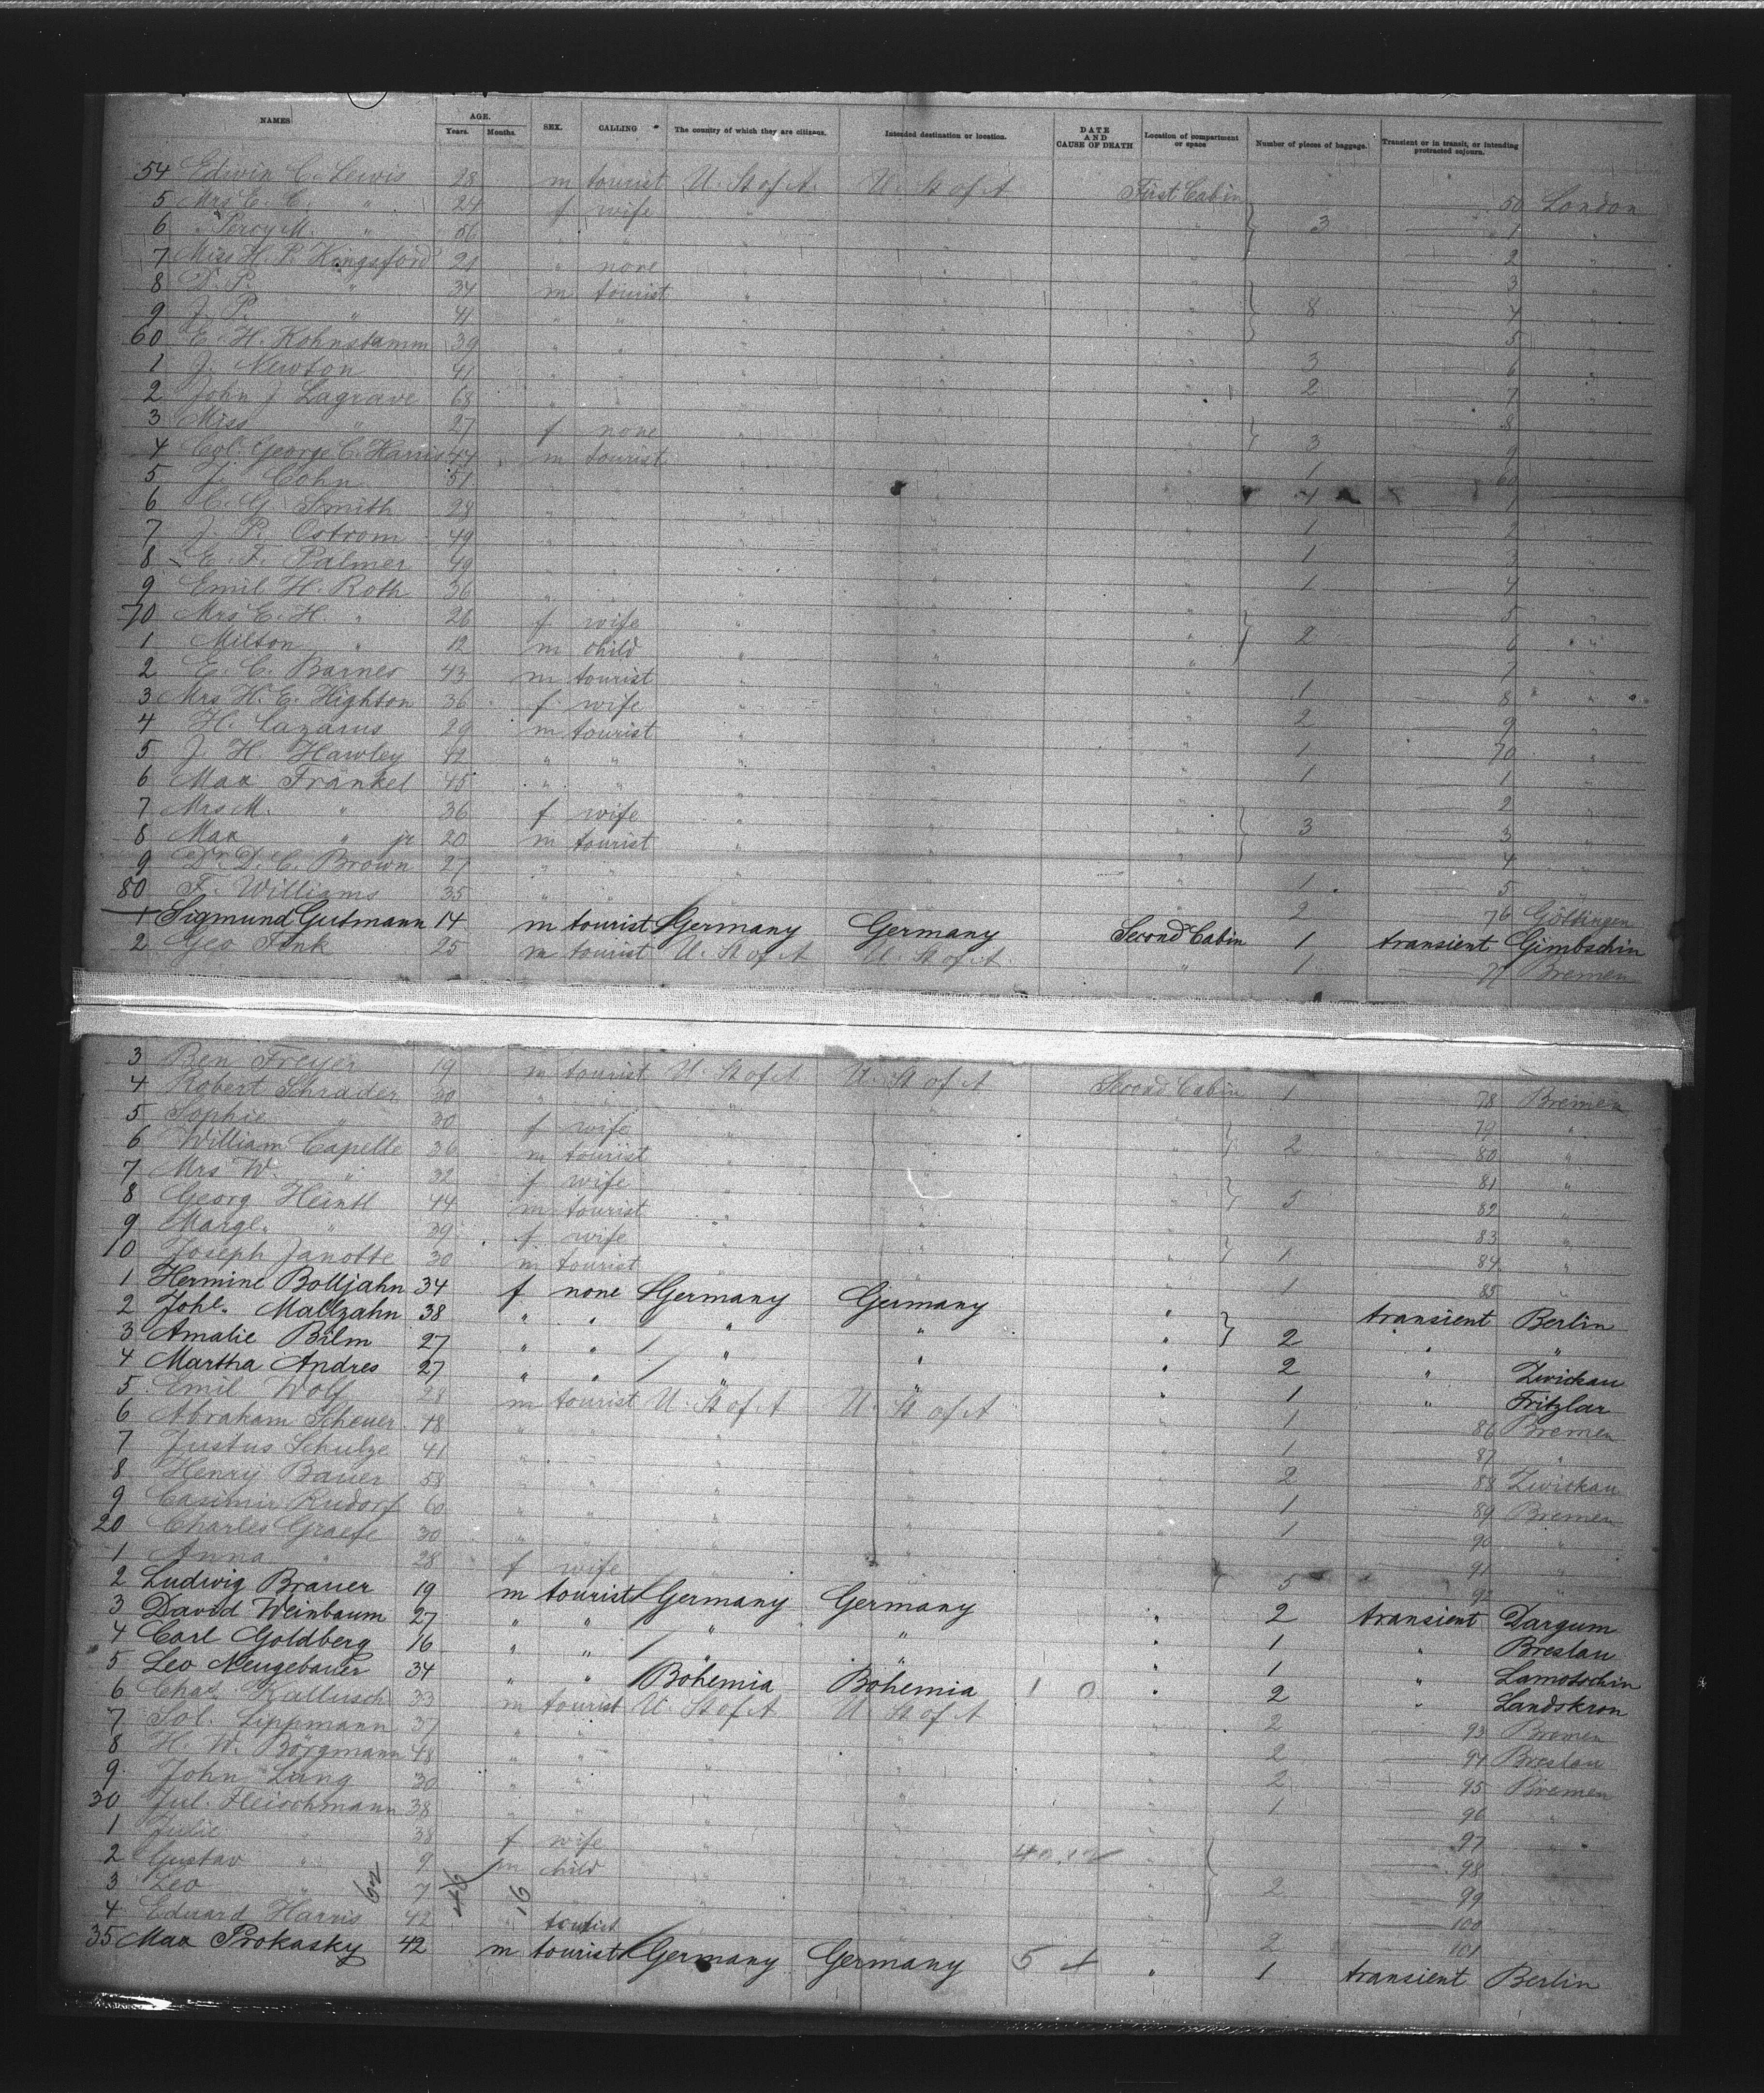 NAMES AGE. SEX. CALLING The country of which they are citizens. Intended destination or location. DATE AND CAUSE OF DEATH Location of compartment or space Number of pieces of baggage. Transient or in transit, or intending protracted sojourn.
Years. Months.
54 Edwin C. Lewis 28 m tourist U. St of A. U. St of A First Cabin 50 London
5 Mrs E. C. " 24 f wife " " " 3 1 "
6 " Percy M. " 56 " " " " " 2 "
7 Miss H. P. Kingsford 28 " none " " " 3 "
8 D. P. " 34 m tourist " " " 8 4 "
9 J. P. " 41 " " " " " 5 "
60 E. H. Kohnstamm 39 " " " " " 3 6 "
1 J. Newton 41 " " " " " 2 7 "
2 John J Lagrave 68 " " " " " 8 "
3 Miss " 27 f none " " " 3 9 "
4 Col. George C. Harris 47 m tourist " " " 1 60 "
5 J. Cohn 51 " " " " " 4 1 "
6 C. G. Smith 28 " " " " " 1 2 "
7 J. P. Ostrom 49 " " " " " 1 3 "
8 E. F. Palmer 49 " " " " " 1 4 "
9 Emil H. Roth 36 " " " " " 5 "
70 Mrs E. H. " 26 f wife " " " 2 6 "
1 Milton " 12 m child " " " 7 "
2 E. C. Barnes 43 m tourist " " " 1 8 "
3 Mrs H. E. Highton 36 f wife " " " 2 9 "
4 H. Lazarus 29 m tourist " " " 1 70 "
5 J. H. Hawley 42 " " " " " 1 1 "
6 Max Fränkel 45 " " " " " 2 "
7 Mrs M. " 36 f wife " " " 3 3 "
8 Max " jr 20 m tourist " " " 4 "
9 Dr. D. C. Brown 27 " " " " " 1 5 "
80 F. Williams 35 " " " " " 2 76 Göttingen
1 Sigmund Gutmann 14 m tourist Germany Germany Second Cabin 1 transient Gimbschin
2 Geo Fink 25 m tourist U. St of A U. St of A. " 1 77 Bremen
3 Ben Freyer 19 m tourist U. St of A. U. St of A Second Cabin 1 78 Bremen
4 Robert Schrader 30 " " " " " 79 "
5 Sophie " 30 f wife " " " 2 80 "
6 William Capelle 36 m tourist " " " 81 "
7 Mrs W. " 32 f wife " " " 5 82 "
8 Georg Heintl 44 m tourist " " " 83 "
9 Margt. " 39 f wife " " " 1 84 "
10 Joseph Janotte 30 m tourist " " " 1 85 "
1 Hermine Bolljahn 34 f none Germany Germany " transient Berlin
2 Johe. Mallzahn 38 " " " " " 2 " "
3 Amalie Bilm 27 " " " " " 2 " Zwickau
4 Martha Andres 27 " " " " " 1 " Fritzlar
5 Emil Wolf 28 m tourist U. St of A U. St of A " 1 86 Bremen
6 Abraham Scheuer 18 " " " " " 1 87 "
7 Justus Schulze 41 " " " " " 2 88 Zwickau
8 Henry Bauer 58 " " " " " 1 89 Bremen
9 Casimir Rudorf 60 " " " " " 1 90 "
20 Charles Graefe 30 " " " " " 91 "
1 Anna " 28 f wife " " " 5 92 "
2 Ludwig Brauer 19 m tourist Germany Germany " 2 transient Dargum
3 David Weinbaum 27 " " " " " 1 " Breslau
4 Carl Goldberg 16 " " " " " 1 " Lamotschin
5 Leo Neugebauer 34 " " Bohemia Bohemia 1 0 " 2 " Landskron
6 Chas. Kallusch 33 m tourist U. St of A U. St of A " 2 93 Bremen
7 Sol. Lippmann 37 " " " " " 2 94 Breslau
8 H. W. Börgmann 48 " " " " " 2 95 Bremen
9 John Lang 30 " " " " " 1 96 "
30 Jul. Fleischmann 38 " " " " " 97 "
1 Julie " 38 f wife " " " 98 "
2 Gustav " 9 m child " " " 2 99 "
3 Leo " 7 " " " " " 100
4 Eduard Harris 42 " tourist " " " 2 101
62 46 16
35 Max Prokasky 42 m tourist Germany Germany 5 + " 1 transient Berlin